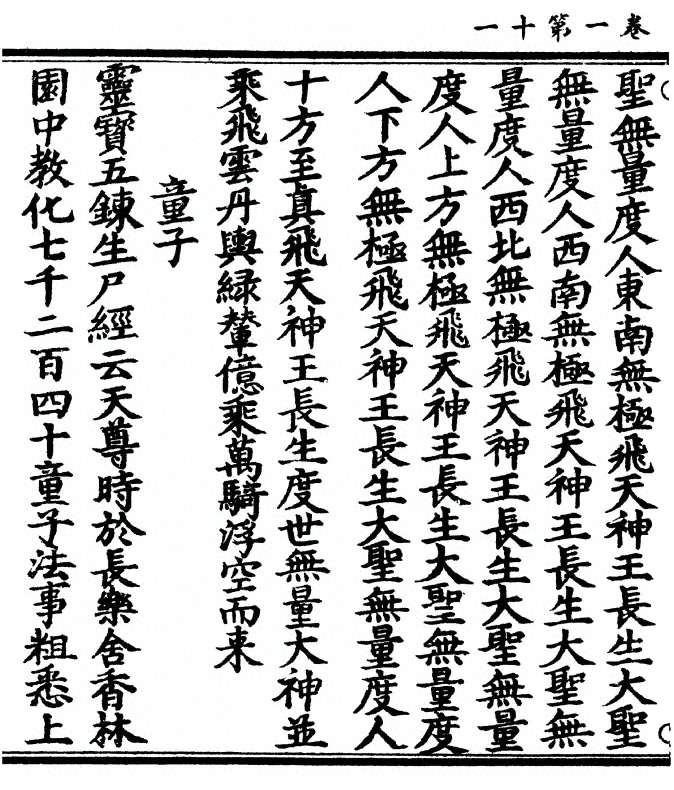 卷一第十一
聖無量度人東南無極飛天神王長生大聖
無量度人西南無極飛天神王長生大聖無
量度人西北無極飛天神王長生大聖無量
度人上方無極飛天神王長生大聖無量度
人下方無極飛天神王長生大聖無量度人
十方至真飛天神王長生度世無量大神並
乘飛雲丹輿緑輦億乘萬騎浮空而来
童子
靈寶五鍊生尸經云天尊時於長樂舍香林
園中教化七千二百四十童子法事粗悉上